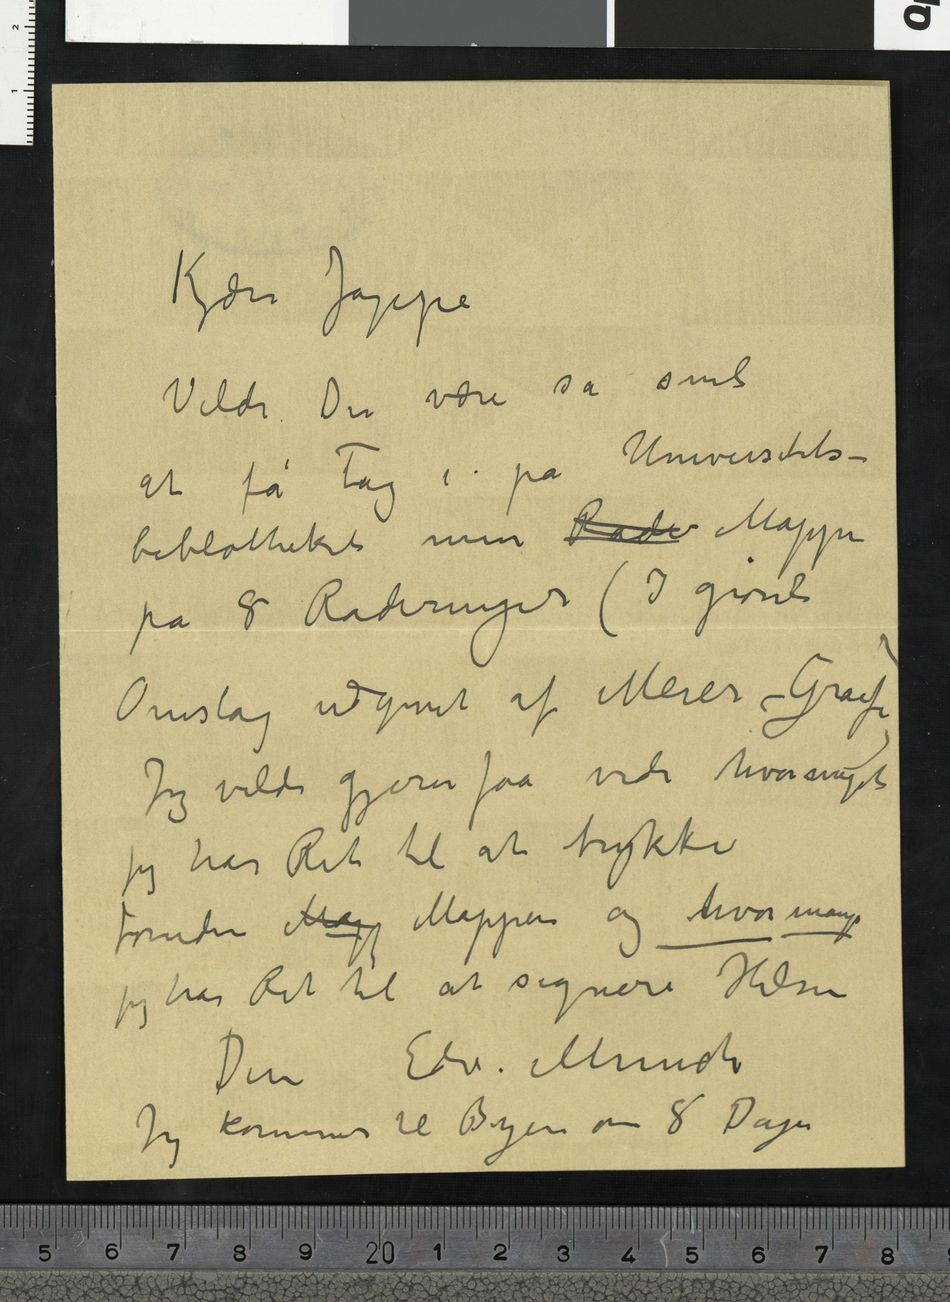 Kjære Jappe
Vilde Du være så snil
at få Tag i på Universitets-
bibliotheket min Rade Mappe
på 8 Raderinger (I grønt
Omslag udgivet af Meier-Graefe)
Jeg vilde gjerne faa vide hvormeget
jeg har Ret til at trykke
foruden Mapp Mappen og hvor mange
jeg har Ret til at signere Hilsen
Din Edv. Munch
Jeg kommer til Byen om 8 Dage
5 6 7 8 9 20 1 2 3 4 5 6 7 8